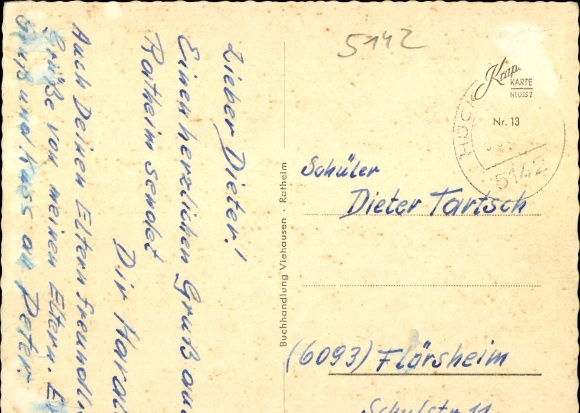 Lieber Dieter!
Einen herzlichen Gruß aus
Ratheim sendet
Dir Harald
Auch Deinen Eltern freundl
Grüße von meinen Etern. E
Gruß und Kuss an Peter.
Buchhandlung Viehausen · Ratheim
5142
Krapp
KARTE
NEUSS 2
Nr. 13
HÜCK
5142
Schüler
Dieter Tartsch
(6093) Flörsheim
Schulstr 11